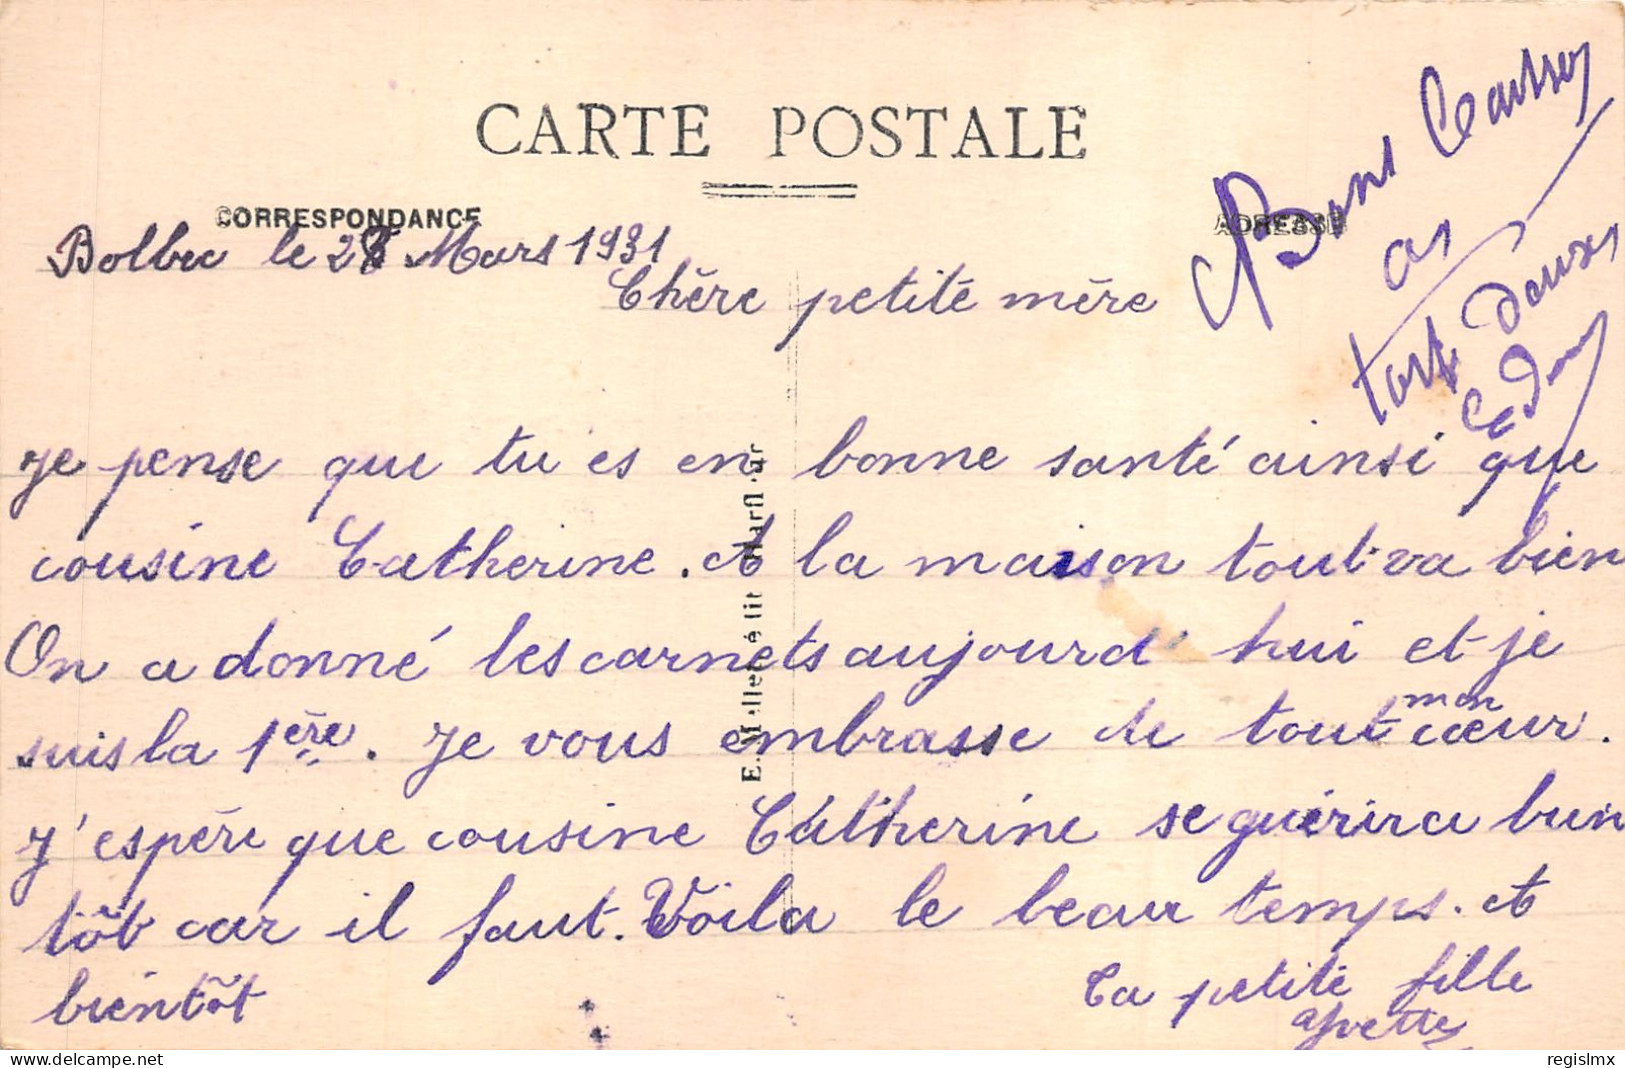 CARTE POSTALE
CORRESPONDANCE
ADRESSE
Bolbec le 28 Mars 1931
Chère petite mère
Je pense que tu es en bonne santé ainsi que
cousine Catherine. A la maison tout va bien
On a donné les carnets aujourd'hui et je
suis la 1ère. Je vous embrasse de tout mon cœur.
J'espère que cousine Catherine se guérira bien
tôt car il faut. Voila le beau temps. A
bientôt
Ta petite fille
Yvette
Bons
à
tous deux
E. M
édit
regislmx